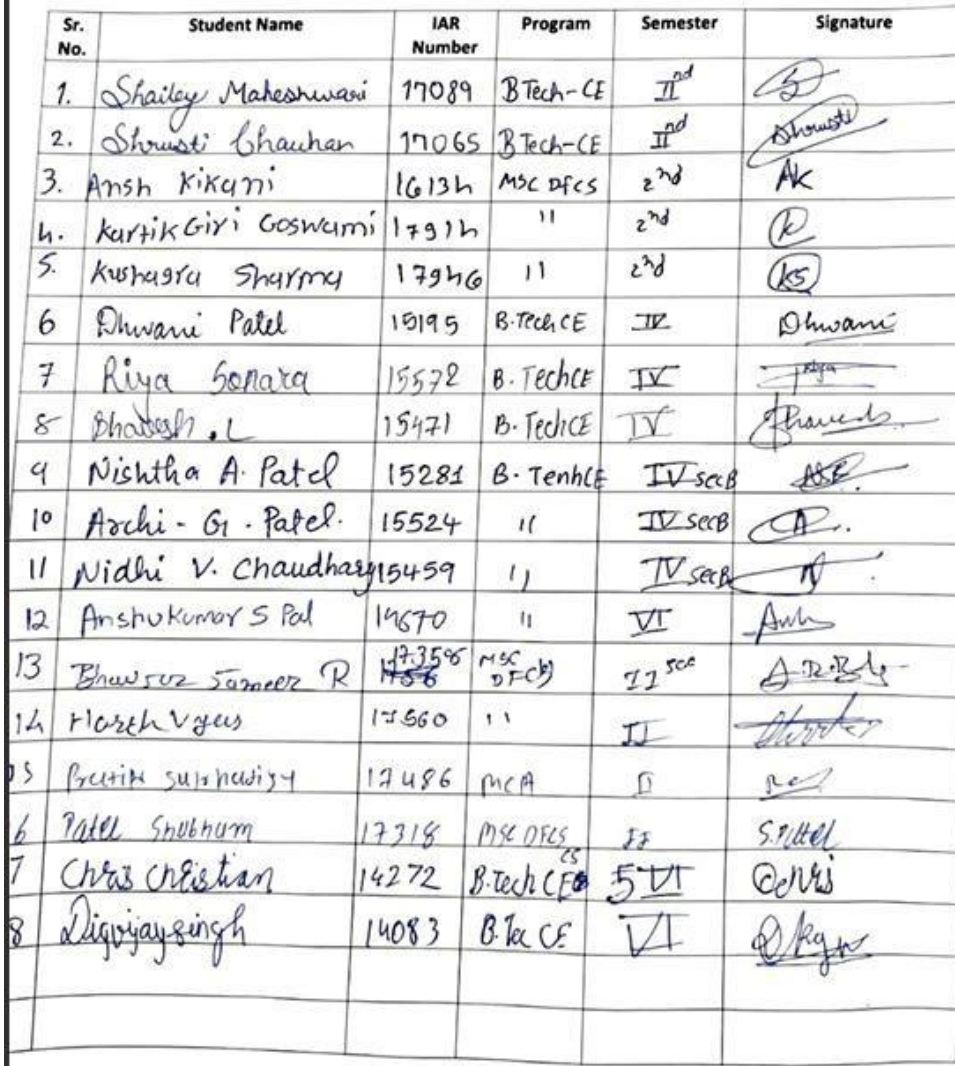 Sr. No. Student Name IAR Number Program Semester Signature
1. Shailey Maheshwari 17089 BTech-CE IInd S
2. Shrusti Chauhan 17065 BTech-CE IInd Shrusti
3. Ansh Kikani 16134 MSC DFCS 2nd AK
4. Kartik Giri Goswami 17914 " 2nd K
5. Kushagra Sharma 17946 " 2nd KS
6 Dhwani Patel 15195 B.Tech CE IV Dhwani
7 Riya Sonara 15572 B. Tech CE IV Riya
8 Bhavesh . L 15471 B. Tech CE IV
9 Nishtha A. Patel 15281 B. Tenh CE IV sec B
10 Archi - G . Patel. 15524 " IV sec B A
11 Nidhi V. Chaudhary 15459 " IV sec B N
12 Anshukumar S Pal 14670 " VI
13 Sameer R 17358 MSC DFC II
14 Vyas 17560 " II
17486 MCA II
6 Patel Shubham 17318 MSC DFCS II S.Patel
7 Chris Christian 14272 B.Tech CE CS 5 VI Chris
8 Digvijaysingh 14083 B.Te CE VI